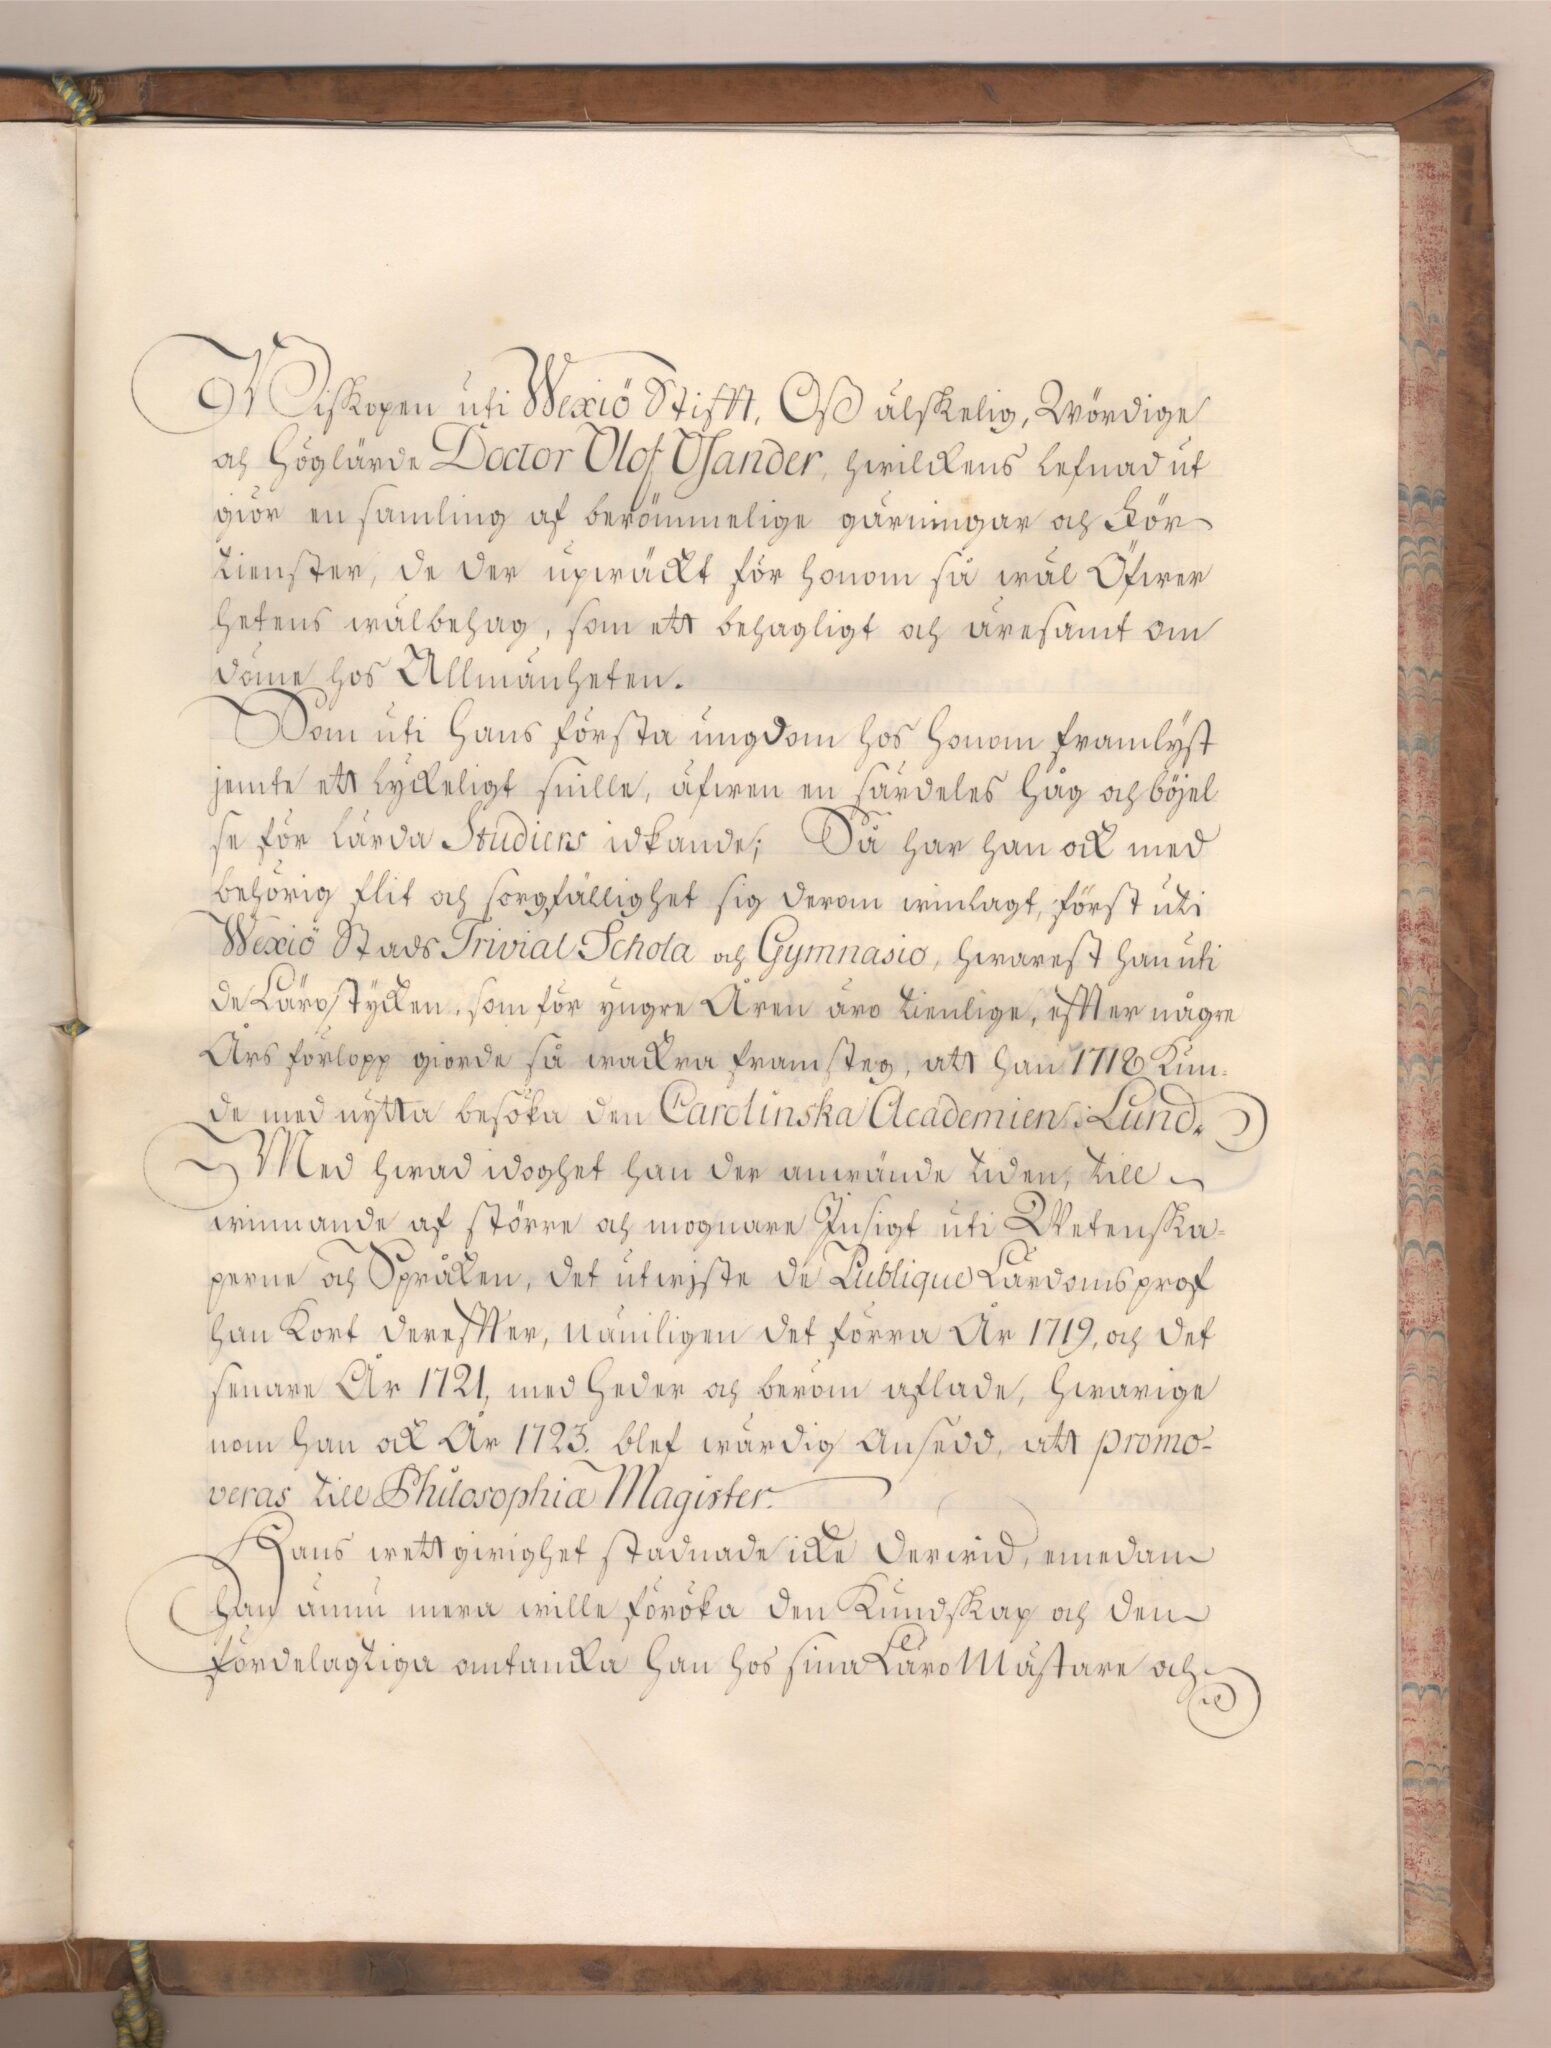 Biskopen uti Wexiö Stifft, Oß älskelig, Wördige
och Höglärde Doctor Olof Osander, hwilckens Lefnad ut
giör en samling af berömmelige gärningar och För
tienster, de der upwäckt för honom så wäl Öfwer
hetens wälbehag, som ett behagligt och äresamt om
döme hos Allmänheten.
Som uti Hans första ungdom hos honom framlyst
jemte ett lyckeligt snille, äfwen en särdeles Håg och böjel
se för Lärda Studiers idkande; Så har han ock med
behörig flit och sorgfällighet sig derom winlagt, först uti
Wexiö Stads Trivial Schola och Gymnasio, hwarest han uti
de Lärostycken, som för yngre Åren äro tienlige, effter några
Års förlopp giorde så wackra framsteg, att han 1718 Kun-
de med nytta besöka den Carolinska Academien i Lund.
Med hwad idoghet han der använde tiden, till
winnande af större och mognare Insigt uti Wetenska-
perne och Språken, det utwiste de Publique Lärdomsprof
han kort dereffter, nämligen det förra År 1719, och det
senare År 1721, med heder och beröm aflade, hwarige
nom han ock År 1723. blef wärdig ansedd, att promo-
veras till Philosophiæ Magister.
Hans wettgirighet stadnade icke derwid, emedan
han ännu mera wille föröka den Kundskap och den
fördelagtiga omtancka han hos sina Läro Mästare och